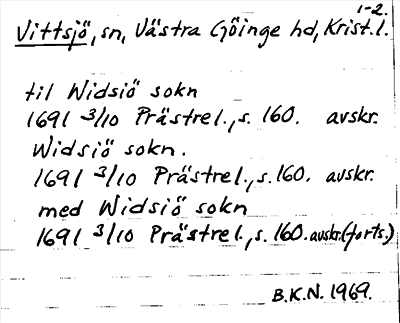 1-2.
Vittsjö, sn, Västra Göinge hd, Krist. l.
til Widsiö sokn
1691 3/10 Prästrel., s. 160. avskr.
Widsiö sokn.
1691 3/10 Prästrel., s. 160. avskr.
med Widsiö sokn
1691 3/10 Prästrel., s. 160. avskr. (forts.)
B.K.N. 1969.